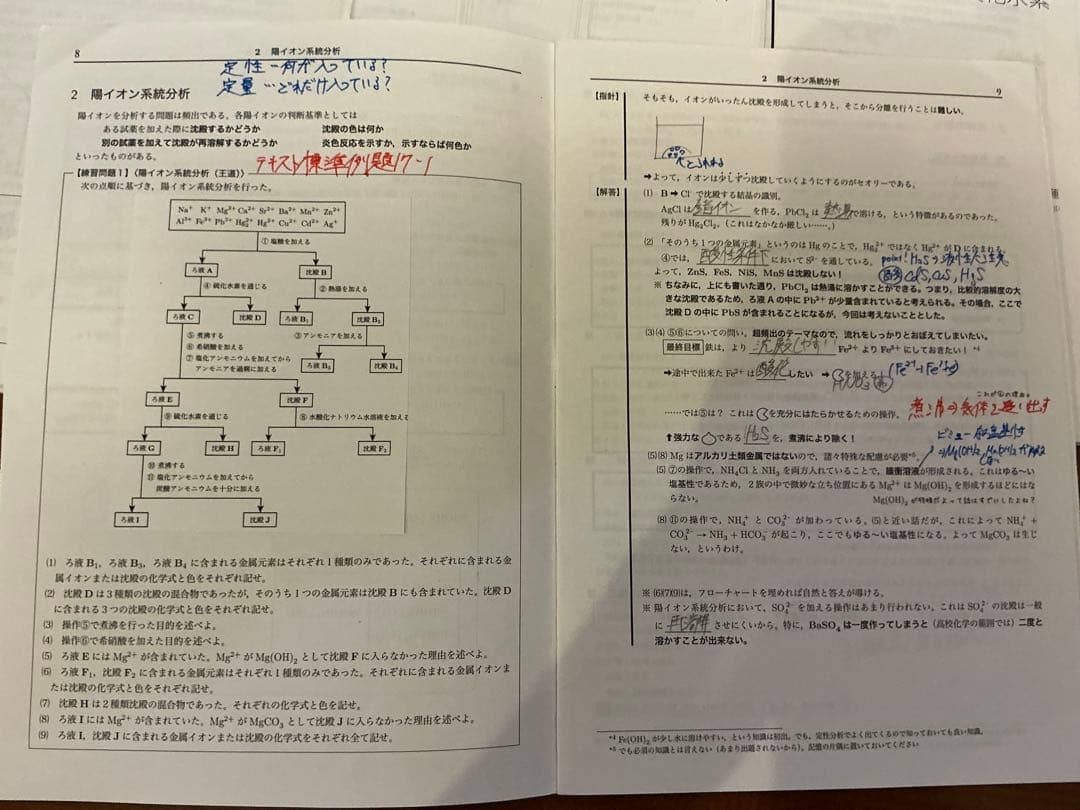 8
2 陽イオン系統分析
定性…何が入っている?
定量…どれだけ入っている?
2 陽イオン系統分析
陽イオンを分析する問題は頻出である。各陽イオンの判断基準としては
ある試薬を加えた際に沈殿するかどうか 沈殿の色は何か
別の試薬を加えて沈殿が再溶解するかどうか 炎色反応を示すか、示すならば何色か
といったものがある。
テキスト標準例題17-1
【練習問題1】〈陽イオン系統分析(王道)〉
次の点順に基づき、陽イオン系統分析を行った。
Na⁺ K⁺ Mg²⁺ Ca²⁺ Sr²⁺ Ba²⁺ Mn²⁺ Zn²⁺
Al³⁺ Fe³⁺ Pb²⁺ Hg₂²⁺ Hg²⁺ Cu²⁺ Cd²⁺ Ag⁺
① 塩酸を加える
ろ液 A 沈殿 B
④ 硫化水素を通じる ② 熱湯を加える
ろ液 C 沈殿 D ろ液 B₁ 沈殿 B₂
⑤ 煮沸する
⑥ 希硝酸を加える
⑦ 塩化アンモニウムを加えてから
アンモニアを過剰に加える
③ アンモニアを加える
ろ液 B₃ 沈殿 B₄
ろ液 E 沈殿 F
⑨ 硫化水素を通じる ⑧ 水酸化ナトリウム水溶液を加える
ろ液 G 沈殿 H ろ液 F₁ 沈殿 F₂
⑩ 煮沸する
⑪ 塩化アンモニウムを加えてから
炭酸アンモニウムを十分に加える
ろ液 I 沈殿 J
(1) ろ液 B₁、ろ液 B₃、ろ液 B₄ に含まれる金属元素はそれぞれ1種類のみであった。それぞれに含まれる金
属イオンまたは沈殿の化学式と色をそれぞれ記せ。
(2) 沈殿 D は3種類の沈殿の混合物であったが、そのうち1つの金属元素は沈殿 B にも含まれていた。沈殿 D
に含まれる3つの沈殿の化学式と色をそれぞれ記せ。
(3) 操作⑤で煮沸を行った目的を述べよ。
(4) 操作⑥で希硝酸を加えた目的を述べよ。
(5) ろ液 E には Mg²⁺ が含まれていた。Mg²⁺ が Mg(OH)₂ として沈殿 F に入らなかった理由を述べよ。
(6) ろ液 F₁、沈殿 F₂ に含まれる金属元素はそれぞれ1種類のみであった。それぞれに含まれる金属イオンま
たは沈殿の化学式と色をそれぞれ記せ。
(7) 沈殿 H は2種類沈殿の混合物であった。それぞれの化学式と色を記せ。
(8) ろ液 I には Mg²⁺ が含まれていた。Mg²⁺ が MgCO₃ として沈殿 J に入らなかった理由を述べよ。
(9) ろ液 I、沈殿 J に含まれる金属イオンまたは沈殿の化学式をそれぞれ全て記せ。
2 陽イオン系統分析
9
【指針】 そもそも、イオンがいったん沈殿を形成してしまうと、そこから分離を行うことは難しい。
とらわれる
→よって、イオンは少しずつ沈殿していくようにするのがセオリーである。
【解答】 (1) B → Cl⁻ で沈殿する結晶の識別。
AgCl は錯イオンを作る、PbCl₂ は熱湯で溶ける、という特徴があるのであった。
残りが Hg₂Cl₂。(これはなかなか厳しい……。)
(2) 「そのうち1つの金属元素」というのは Hg のことで、Hg₂²⁺ ではなく Hg²⁺ が D に含まれる。
④では、酸性条件下において S²⁻ を通している。 point! H₂Sの液性に注意
よって、ZnS、FeS、NiS、MnS は沈殿しない! CdS, CuS, HgS
※ ちなみに、上にも書いた通り、PbCl₂ は熱湯に溶かすことができる。つまり、比較的溶解度の大
きな沈殿であるため、ろ液 A の中に Pb²⁺ が少量含まれていると考えられる。その場合、ここで
沈殿 D の中に PbS が含まれることになるが、今回は考えないこととした。
(3)(4) ⑤⑥についての問い。超頻出のテーマなので、流れをしっかりとおぼえてしまいたい。
最終目標 鉄は、より沈殿しやすい Fe²⁺ より Fe³⁺ にしておきたい! *⁴
→途中で出来た Fe²⁺ は酸化したい → を加える (Fe²⁺→Fe³⁺)
HNO₃
これが⑤の理由
……では⑤は? これは を充分にはたらかせるための操作。 煮沸⇒気体を追い出す
⬆強力な である H₂S を、煮沸により除く!
(5)(8) Mg はアルカリ土類金属ではないので、諸々特殊な配慮が必要*⁵。
(5) ⑦の操作で、NH₄Cl と NH₃ を両方入れていることで、緩衝溶液が形成される。これはゆる〜い
塩基性であるため、2族の中で微妙な立ち位置にある Mg²⁺ は Mg(OH)₂ を形成するほどにはな
らない。 Mg(OH)₂ が特殊だよって話はすでにしたよね?
(8) ⑪の操作で、NH₄⁺ と CO₃²⁻ が加わっている。(5)と近い話だが、これによって NH₄⁺ +
CO₃²⁻ → NH₃ + HCO₃⁻ が起こり、ここでもゆる〜い塩基性になる。よって MgCO₃ は生じ
ない、というわけ。
※ (6)(7)(9)は、フローチャートを埋めれば自然と答えが導ける。
※ 陽イオン系統分析において、SO₄²⁻ を加える操作はあまり行われない。これは SO₄²⁻ の沈殿は一般
に再溶解させにくいから。特に、BaSO₄ は一度作ってしまうと(高校化学の範囲では)二度と
溶かすことが出来ない。
*⁴ Fe(OH)₂ が少し水に溶けやすい、という知識は初出。でも、定性分析でよく出てくるので知っておいても良い知識。
*⁵ でも必須の知識とは言えない(あまり出題されないから)。記憶の片隅に置いておいてください